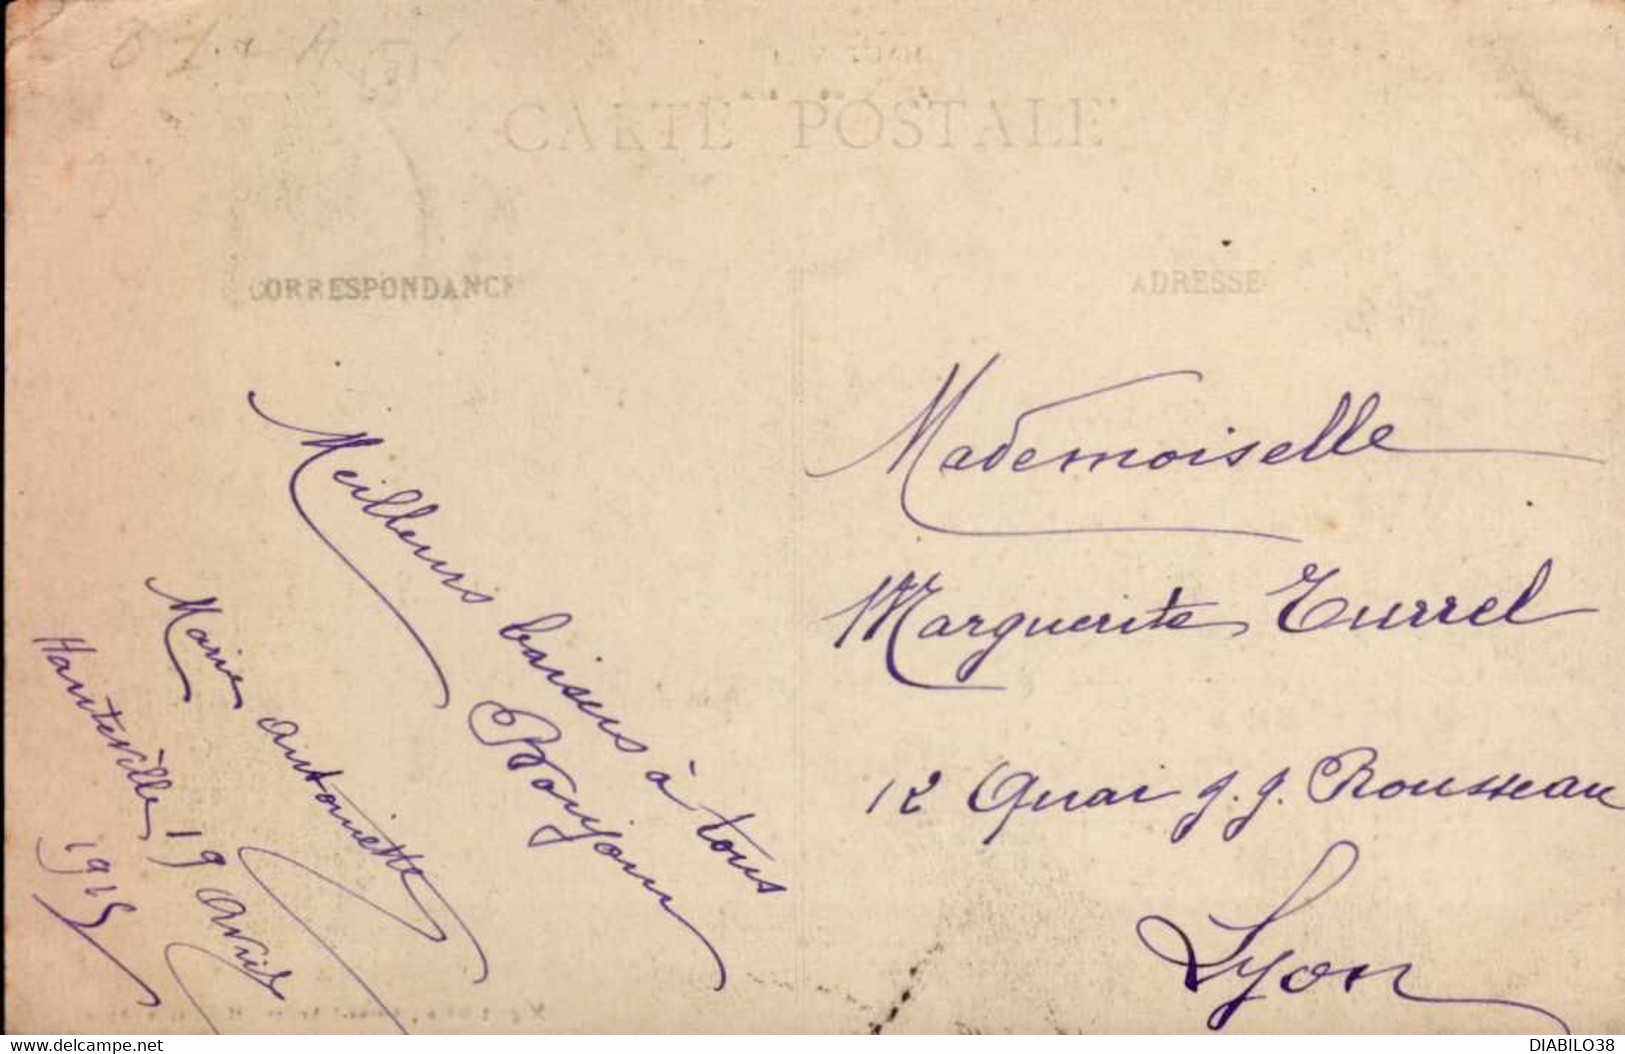 CARTE POSTALE
CORRESPONDANCE
ADRESSE
Meilleurs baisers à tous
Bonjour
Marie Antoinette
Hauteville 19 Avril
1915
Mademoiselle
Marguerite Turrel
12 Quai J. J. Rousseau
Lyon
www.delcampe.net
DIABILO38